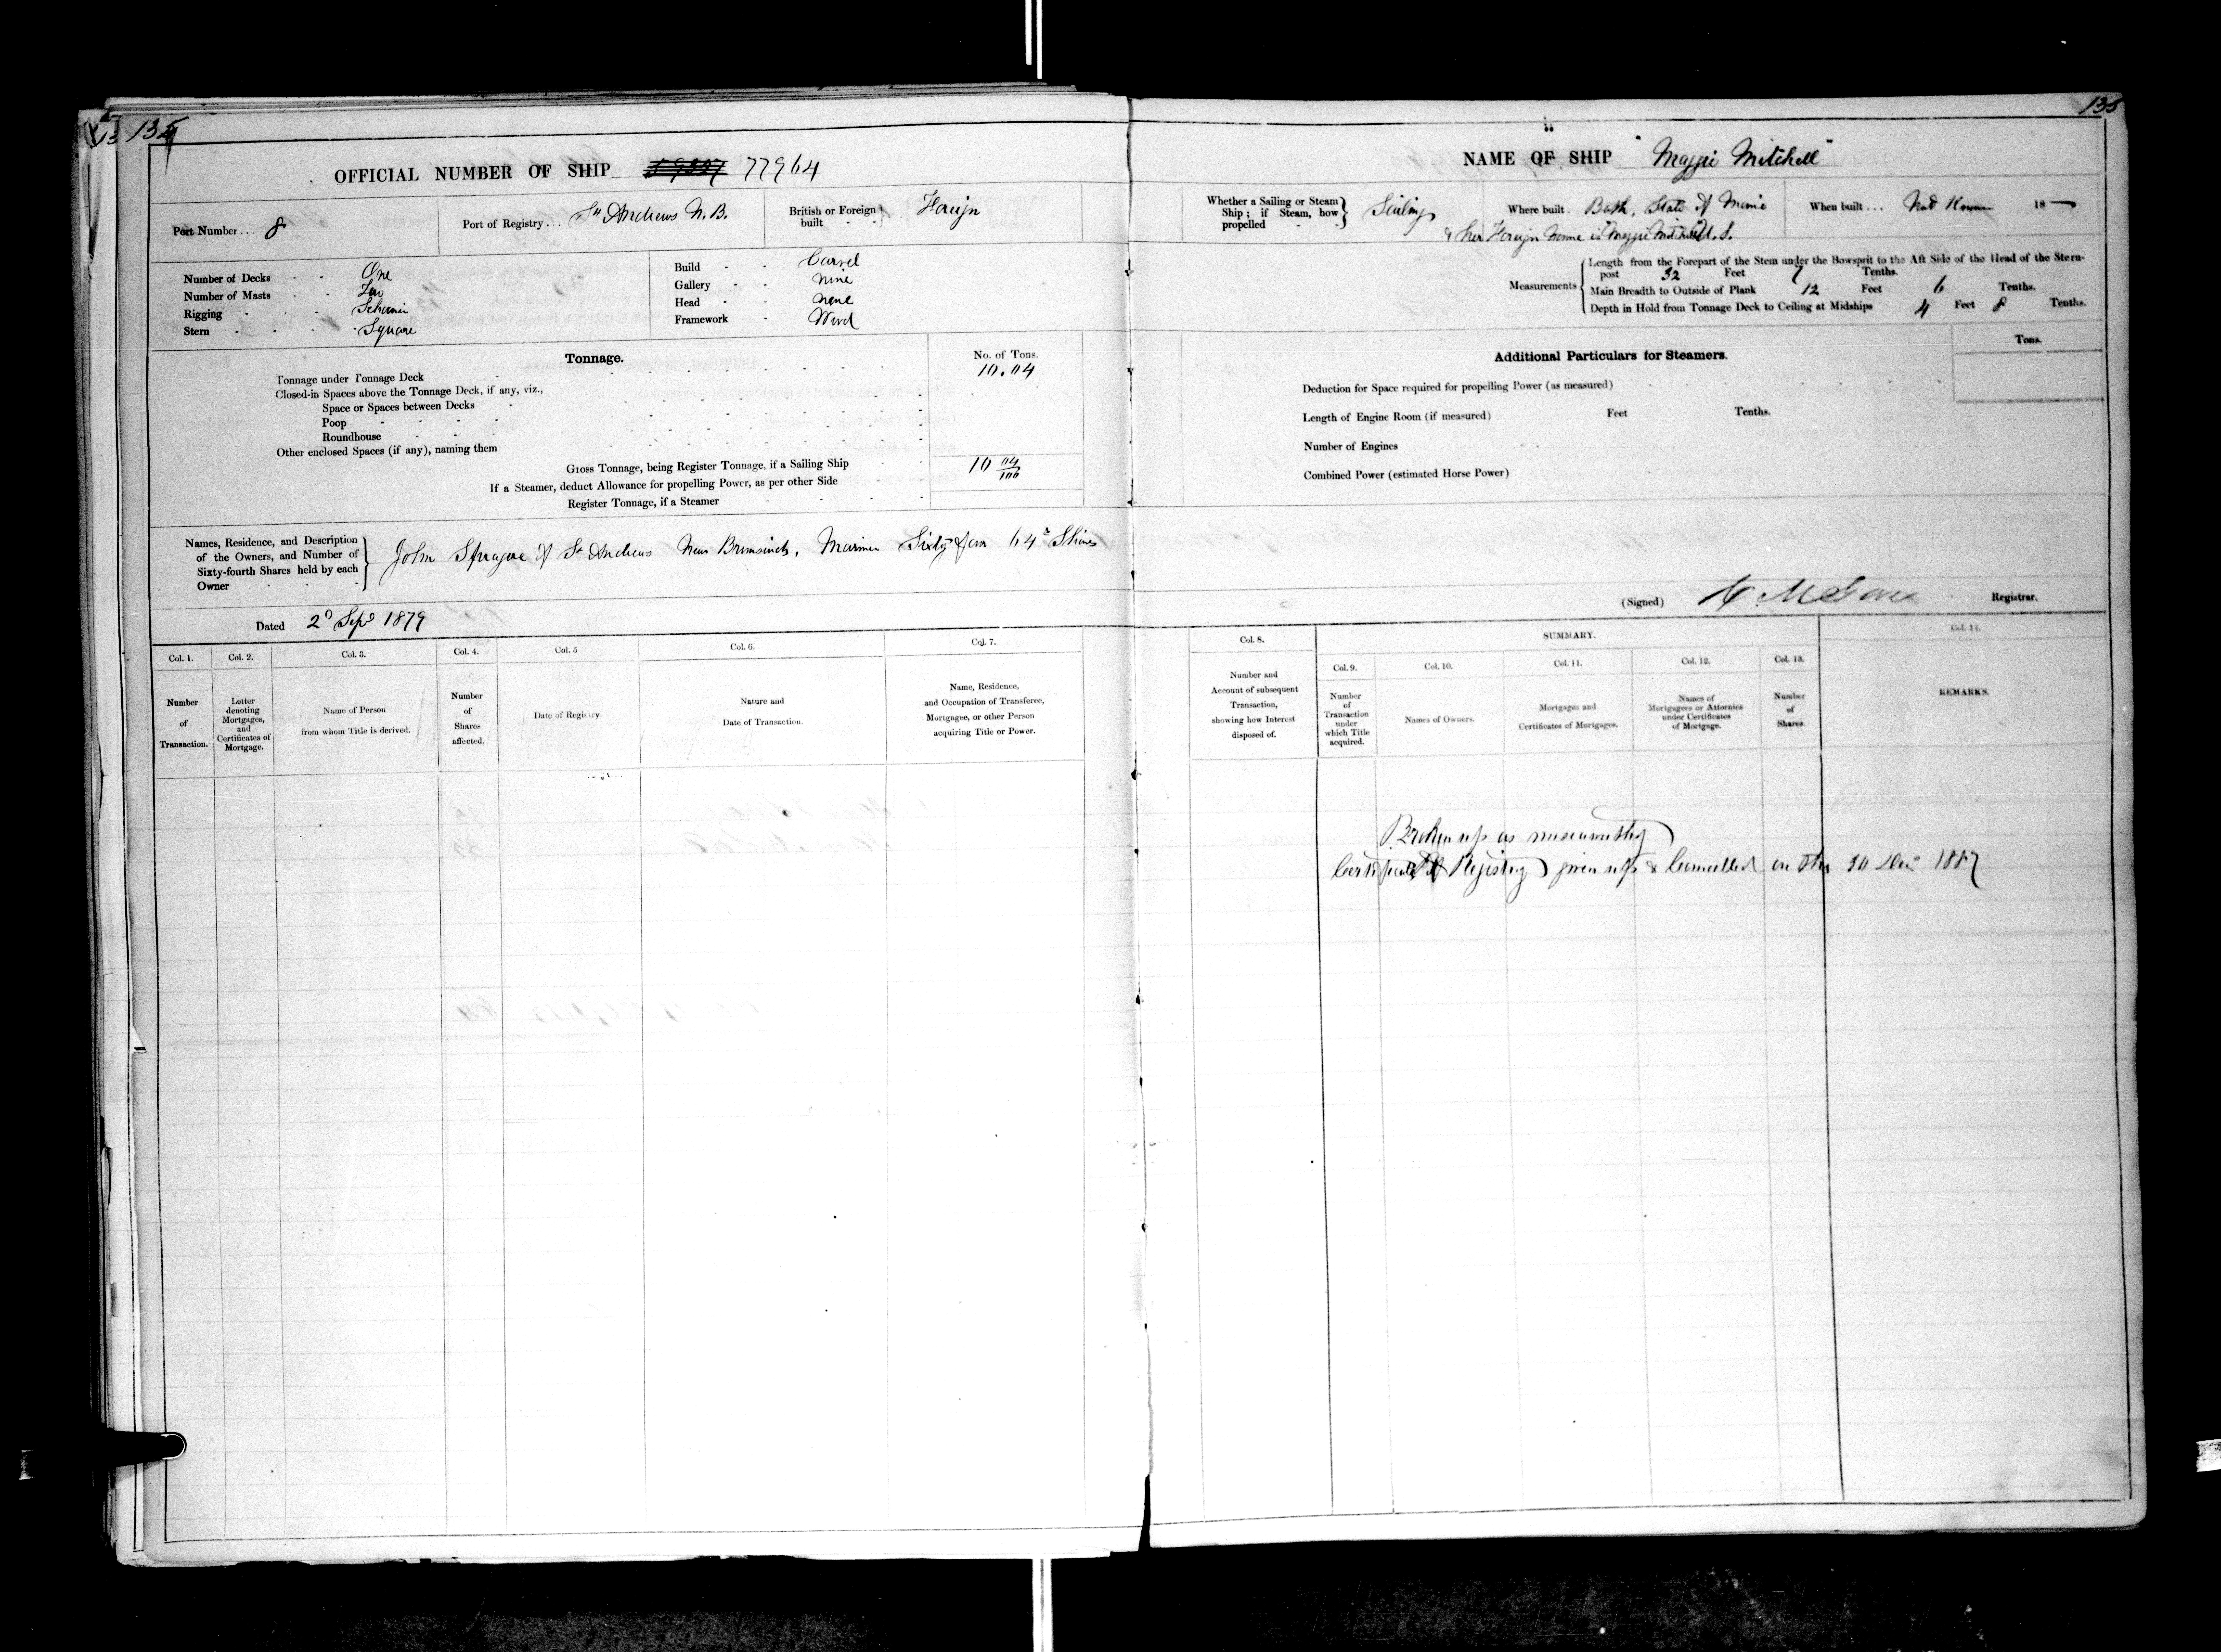 134
135
OFFICIAL NUMBER OF SHIP 77964
NAME OF SHIP "Maggie Mitchell"
Port Number... 8
Port of Registry... St Andrews N.B.
British or Foreign built - - Foreign
Whether a Sailing or Steam Ship; if Steam, how propelled - - Sailing
Where built. Bath, State of Maine U.S.
When built... Not Known 18—
& her Foreign Name is Maggie Mitchell
Number of Decks - - One
Number of Masts - - Two
Rigging - - - Schooner
Stern - - - Square
Build - - Carvel
Gallery - - None
Head - - None
Framework - Wood
Measurements
Length from the Forepart of the Stem under the Bowsprit to the Aft Side of the Head of the Stern-
post 32 Feet 7 Tenths.
Main Breadth to Outside of Plank 12 Feet 6 Tenths.
Depth in Hold from Tonnage Deck to Ceiling at Midships 4 Feet 8 Tenths.
Tonnage.
No. of Tons.
Tonnage under Tonnage Deck 10.04
Closed-in Spaces above the Tonnage Deck, if any, viz.,
Space or Spaces between Decks
Poop
Roundhouse
Other enclosed Spaces (if any), naming them
Gross Tonnage, being Register Tonnage, if a Sailing Ship 10 04/100
If a Steamer, deduct Allowance for propelling Power, as per other Side
Register Tonnage, if a Steamer
Additional Particulars for Steamers.
Tons.
Deduction for Space required for propelling Power (as measured)
Length of Engine Room (if measured) Feet Tenths.
Number of Engines
Combined Power (estimated Horse Power)
Names, Residence, and Description of the Owners, and Number of Sixty-fourth Shares held by each Owner
John Sprague of St Andrews New Brunswick, Mariner Sixty four 64th Shares
Dated 2d Sept 1879
(Signed) Registrar.
Col. 1.
Number of Transaction.
Col. 2.
Letter denoting Mortgages, and Certificates of Mortgage.
Col. 3.
Name of Person from whom Title is derived.
Col. 4.
Number of Shares affected.
Col. 5
Date of Registry
Col. 6.
Nature and Date of Transaction.
Col. 7.
Name, Residence, and Occupation of Transferee, Mortgagee, or other Person acquiring Title or Power.
Col. 8.
Number and Account of subsequent Transaction, showing how Interest disposed of.
SUMMARY.
Col. 9.
Number of Transaction under which Title acquired.
Col. 10.
Names of Owners.
Col. 11.
Mortgages and Certificates of Mortgages.
Col. 12.
Names of Mortgagees or Attornies under Certificates of Mortgage.
Col. 13.
Number of Shares.
Col. 14.
REMARKS.
Broken up as unseaworthy
Certificate of Registry given up & Cancelled on this 30 Dec 1887